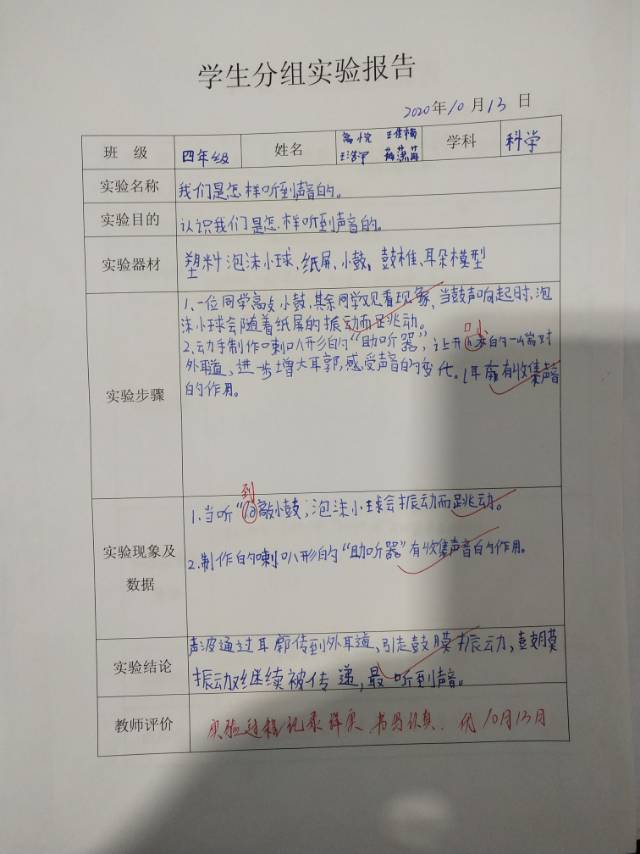 学生分组实验报告
2020年10月13日
班 级 四年级 姓名 学科 科学
实验名称 我们是怎样听到声音的。
实验目的 认识我们是怎样听到声音的。
实验器材 塑料泡沫小球、纸屏、小鼓、鼓槌、耳朵模型
1、一位同学敲小鼓,其余同学观看现象,当鼓声响起时,泡
沫小球会随着纸屏的振动而跳动。
2.动手制作喇叭形的“助听器”,让开口小的一端对
外耳道,进步增大耳郭,感受声音的变化。
耳廓有收集声音
实验步骤
的作用。
到
1.当听 敲小鼓,泡沫小球会振动而跳动。
实验现象及
数据
2.制作的喇叭形的“助听器”有收集声音的作用。
声波通过耳廓传到外耳道,引起鼓膜振动,鼓膜
实验结论
振动继续被传递,最 听到声音。
教师评价 实验过程记录详实、书写认真. 优 10月13日